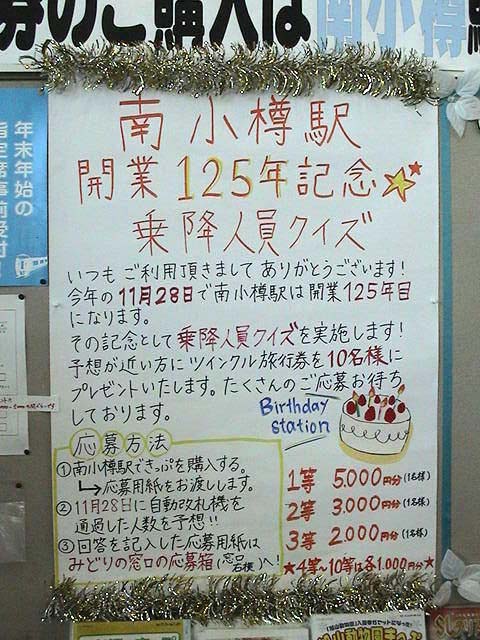 券のご購入は南小樽駅
年末年始の
指定席事前受付!
南小樽駅
開業125年記念
乗降人員クイズ
いつもご利用頂きましてありがとうございます!
今年の11月28日で南小樽駅は開業125年目
になります。
その記念として乗降人員クイズを実施します!
予想が近い方にツインクル旅行券を10名様に
プレゼントいたします。たくさんのご応募お待ち
しております。
Birthday
station
応募方法
①南小樽駅できっぷを購入する。
↳応募用紙をお渡しします。
②11月28日に自動改札機を
通過した人数を予想!!
③回答を記入した応募用紙は
みどりの窓口の応募箱(窓口各横)へ!
1等 5.000円分(1名様)
2等 3.000円分(1名様)
3等 2.000円分(1名様)
★4等~10等は各1.000円分★